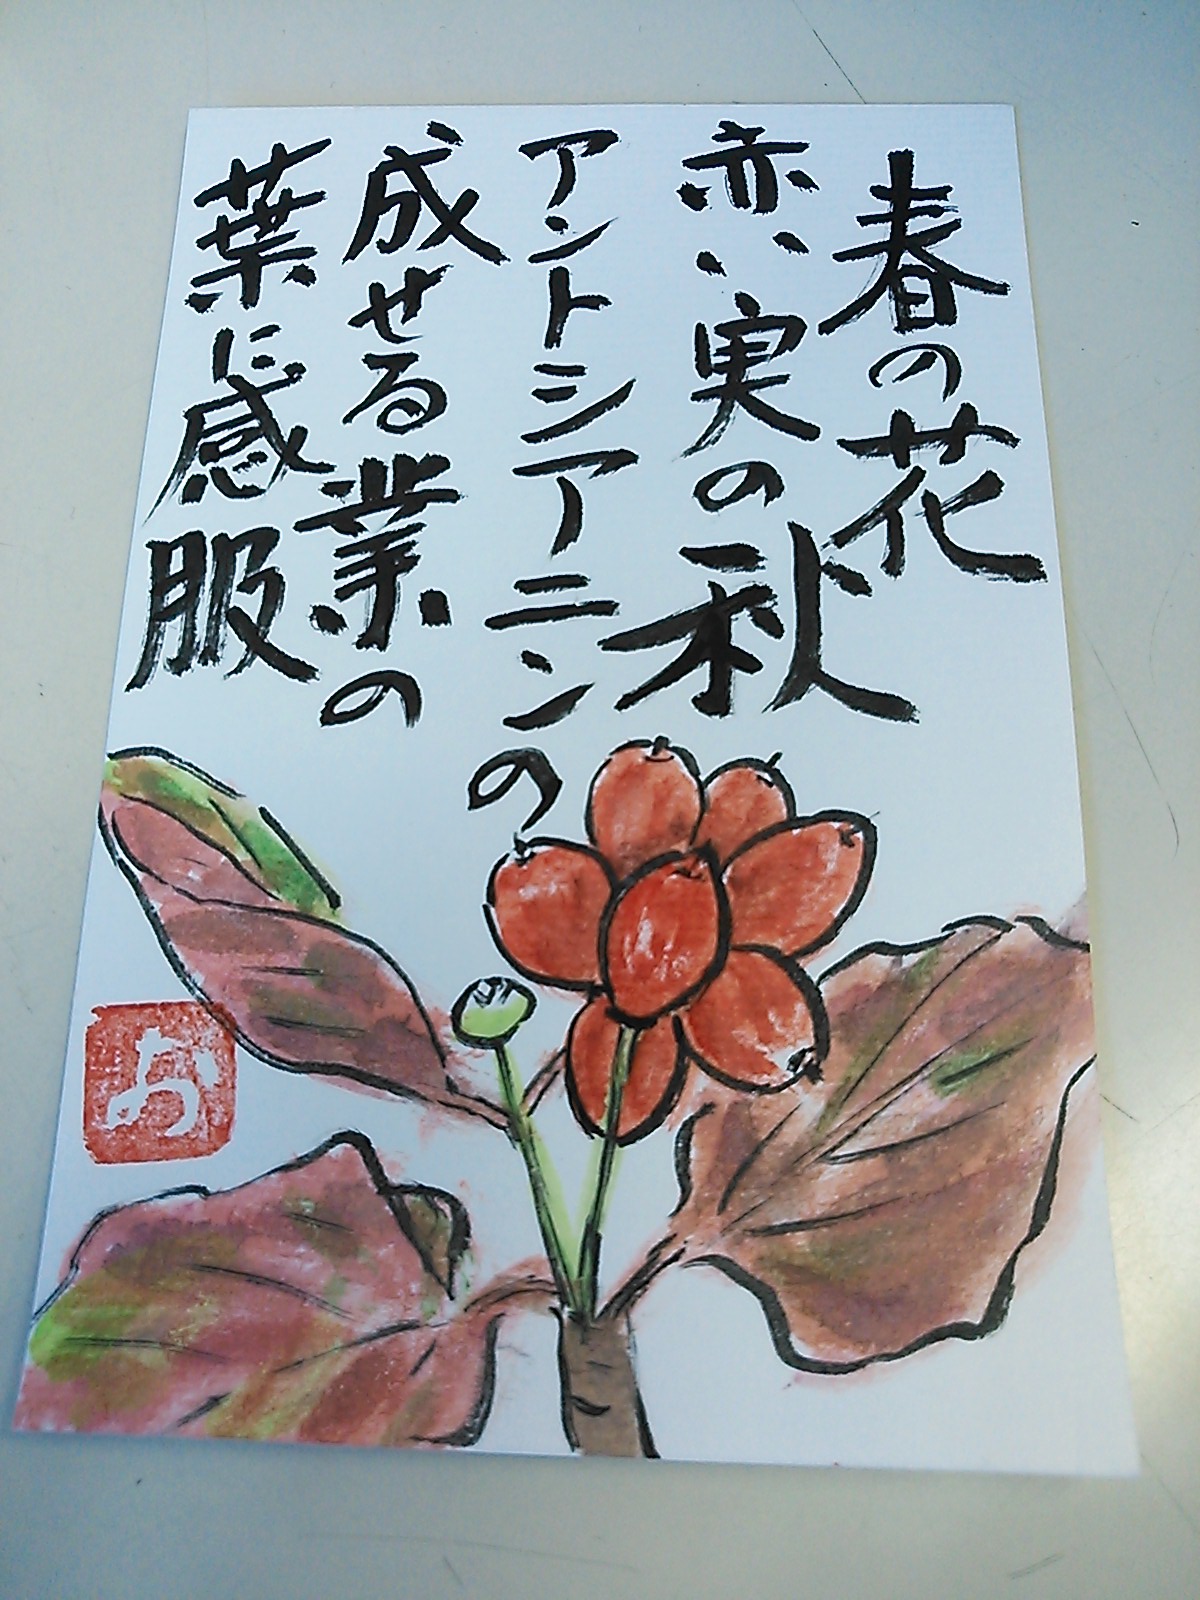 春の花
赤い実の秋
アントシアニンの
成せる業の
葉に感服
お